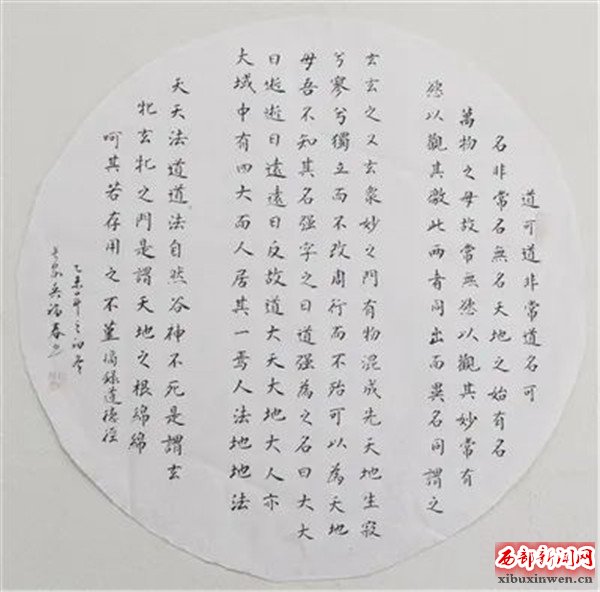 道可道非常道名可
名非常名無名天地之始有名
萬物之母故常無慾以觀其妙常有
慾以觀其徼此兩者同出而異名同謂之
玄玄之又玄衆妙之門有物混成先天地生寂
兮寥兮獨立而不改周行而不殆可以為天地
母吾不知其名强字之曰道强為之名曰大大
曰逝逝曰遠遠曰反故道大天大地大人亦
大域中有四大而人居其一焉人法地地法
天天法道道法自然谷神不死是謂玄
牝玄牝之門是謂天地之根綿綿
呵其若存用之不堇 摘錄道德經
乙未年之初冬
西部新闻网
xibuxinwen.cn